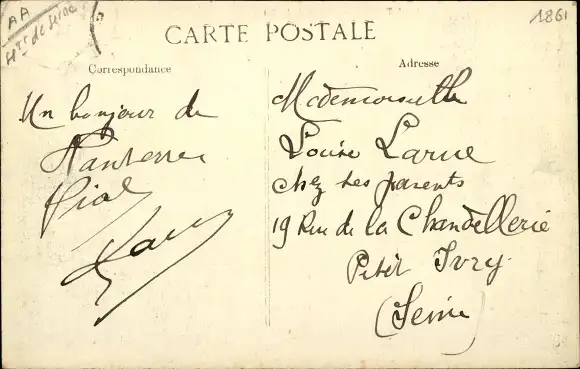 AA
Hts de Seine
1861
CARTE POSTALE
Correspondance
Adresse
Un bonjour de
Nanterre
Mademoiselle
Louise Larue
chez ses parents
19 Rue de la Chandellerie
Petit Ivry
(Seine)